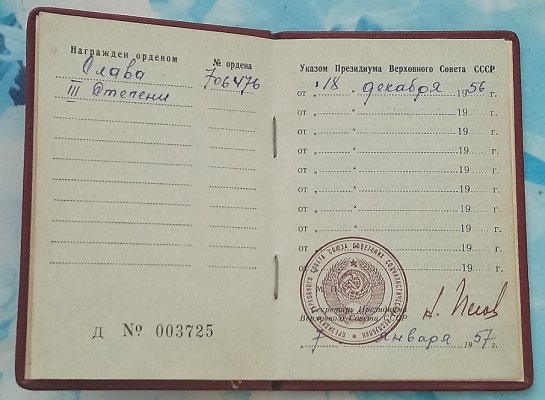 Награжден орденом
№ ордена
Слава
706476
III Степени
Д № 003725
Указом Президиума Верховного Совета СССР
от „ 18 " декабря 1956 г.
от „ " 19 г.
от „ " 19 г.
от „ " 19 г.
от „ " 19 г.
от „ " 19 г.
от „ " 19 г.
от „ " 19 г.
от „ " 19 г.
от „ " 19 г.
ПРЕЗИДИУМ ВЕРХОВНОГО СОВЕТА СОЮЗА СОВЕТСКИХ СОЦИАЛИСТИЧЕСКИХ РЕСПУБЛИК
Секретарь Президиума
Верховного Совета СССР
7 января 1957 г.